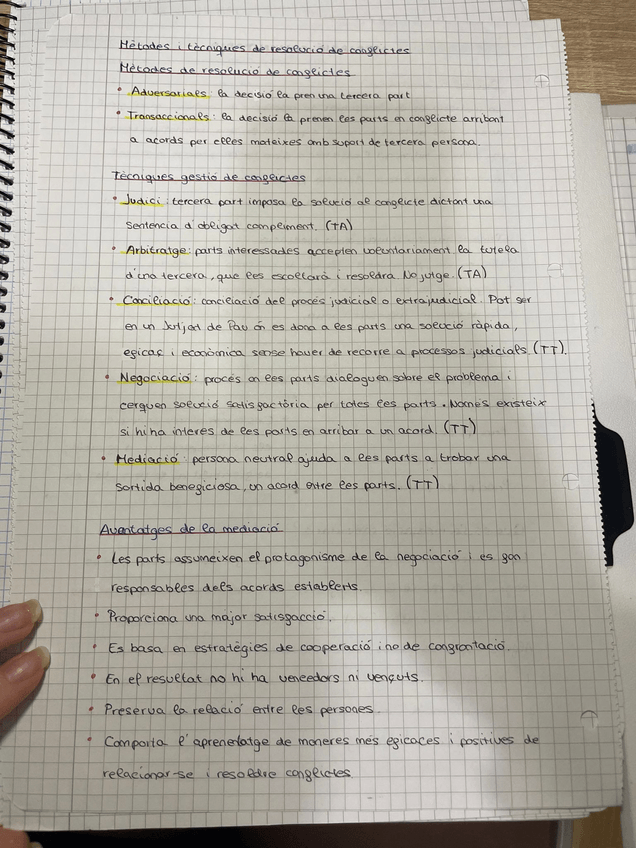 Mètodes i tècniques de resolució de conflictes
Mètodes de resolució de conflictes
• Adversarials: la decisió la pren una tercera part
• Transaccionals: la decisió la prenen les parts en conflicte arribant
a acords per elles mateixes amb suport de tercera persona.
Tècniques gestió de conflictes
• Judici: tercera part imposa la solució al conflicte dictant una
sentencia d'obligat compliment. (TA)
• Arbitratge: parts interessades accepten voluntariament la tutela
d'una tercera, que les escoltarà i resoldrà. No jutge. (TA)
• Conciliació: conciliació del procés judicial o extrajudicial. Pot ser
en un Jutjat de Pau on es dona a les parts una solució ràpida,
eficaç i econòmica sense haver de recorre a processos judicials. (TT).
• Negociació: procés on les parts dialoguen sobre el problema i
cerquen solució satisfactòria per totes les parts. Només existeix
si hi ha interes de les parts en arribar a un acord. (TT)
• Mediació: persona neutral ajuda a les parts a trobar una
sortida beneficiosa, un acord entre les parts. (TT)
Avantatges de la mediació
• Les parts assumeixen el protagonisme de la negociació i es fan
responsables dels acords establerts.
• Proporciona una major satisfacció.
• Es basa en estratègies de cooperació i no de confrontació.
• En el resultat no hi ha vencedors ni vençuts.
• Preserva la relació entre les persones.
• Comporta l'aprenentatge de maneres més eficaces i positives de
relacionar-se i resoldre conflictes